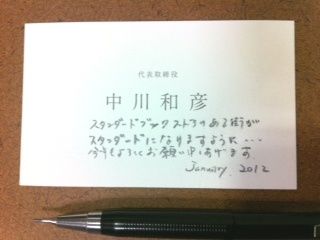 代表取締役
中川和彦
スタンダードブックストアのある街が
スタンダードになりますように…
今年もよろしくお願い申しあげます
January. 2012